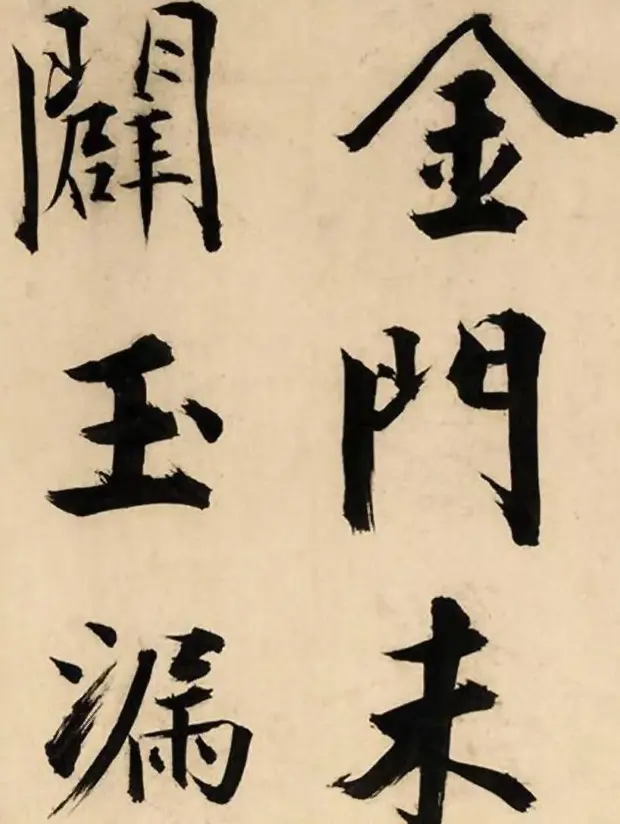 金門未
闢玉漏